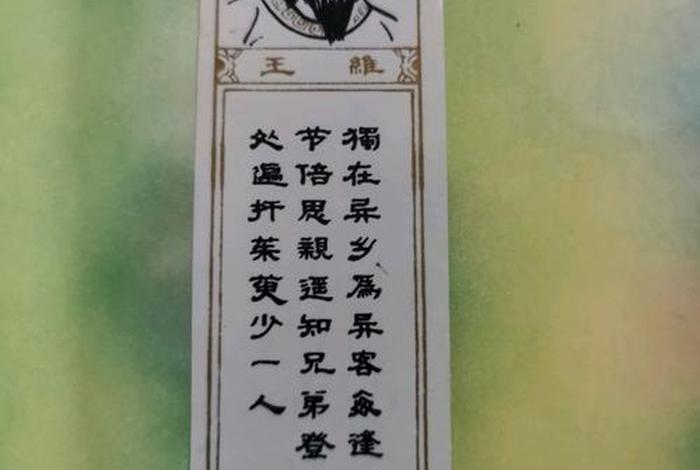 王維
獨在异乡爲异客每逢
节倍思親遥知兄弟登
处遍扦茱萸少一人